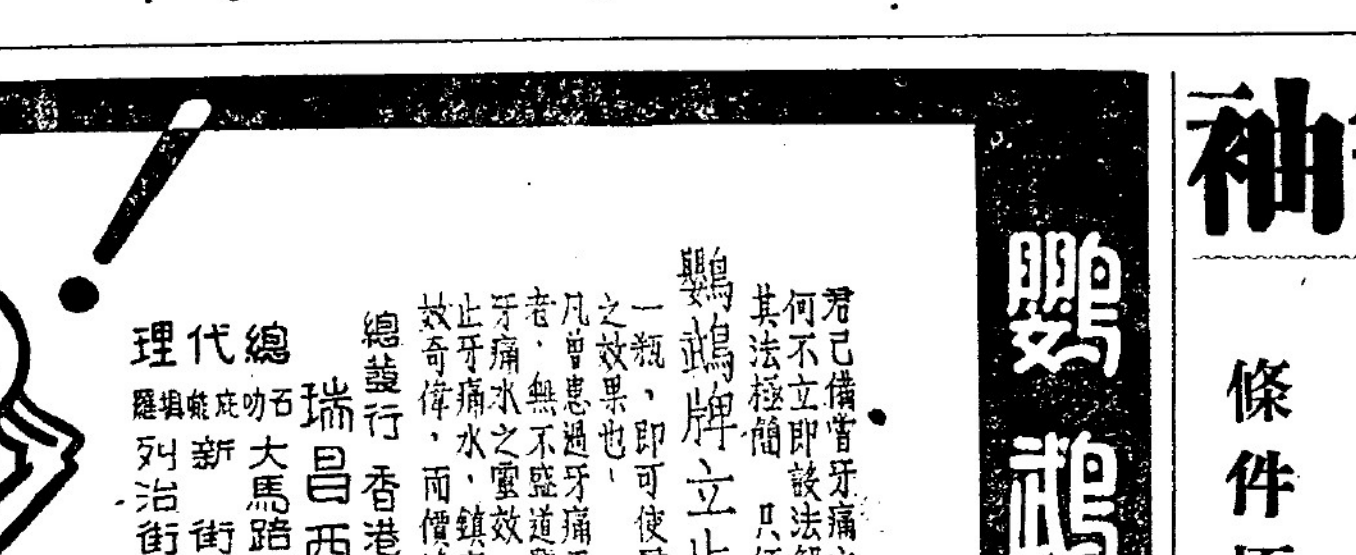 袖
條件
鸚鵡
君已備嘗牙痛
何不立即設法解
其法極簡 只
鸚鵡牌立止
一瓶，即可使
之效果也，
凡曾患過牙痛
者，無不盛道
牙痛水之靈效
止牙痛水，鎮
效奇偉，而價
總發行 香港
瑞昌西
總代理
石叻 大馬路
庇能 新街
列治街